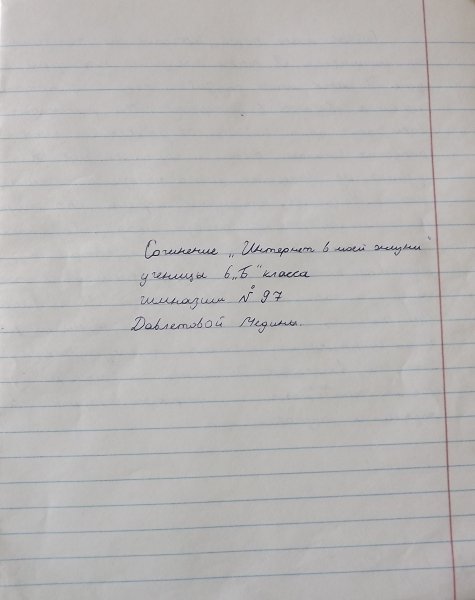 Сочинение „Интернет в моей жизни"
ученицы 6 „Б" класса
гимназии № 97
Давлетовой Медины.